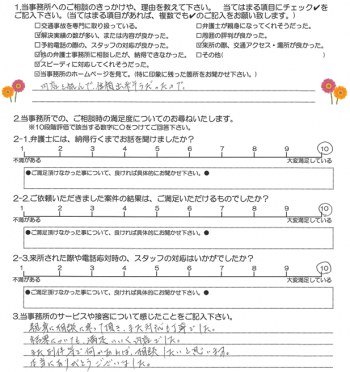 1.当事務所へのご相談のきっかけや、理由を教えて下さい。　当てはまる項目にチェック✔を
ご記入下さい。(当てはまる項目があれば、複数でも✔のご記入をお願い致します。)
□交通事故を専門に取り扱っている。　□弁護士が親身になってくれそうだった。
☑解決実績の数が多い、または内容が良かった。　□周囲の評判が良かった。
□予約電話の際の、スタッフの対応が良かった。　☑来所の際、交通アクセス・場所が良かった。
☑他の弁護士事務所に相談したが、納得できなかった。　□その他(　　)
☑スピーディに対応してくれそうだった。
☑当事務所のホームページを見て。(特に印象に残った箇所をお聞かせ下さい。)
内容を読んで、信頼出来そうだったので。
2.当事務所での、ご相談時の満足度についてのお尋ねいたします。
※10段階評価で該当する数字に○をつけてご回答下さい。
2-1.弁護士には、納得行くまでお話を聞けましたか?
1 2 3 4 5 6 7 8 9 10
不満がある　大変満足している
●ご満足頂けなかった事について、良ければ具体的にお聞かせ下さい。●
2-2.ご依頼いただきました案件の結果は、ご満足いただけるものでしたか?
1 2 3 4 5 6 7 8 9 10
不満がある　大変満足している
●ご満足頂けなかった事について、良ければ具体的にお聞かせ下さい。●
2-3.来所された際や電話応対時の、スタッフの対応はいかがでしたか?
1 2 3 4 5 6 7 8 9 10
不満がある　大変満足している
●ご満足頂けなかった事について、良ければ具体的にお聞かせ下さい。●
3.当事務所のサービスや接客について感じたことをご記入下さい。
親身に相談に乗って頂き、また対応も丁寧でした。
結果についても、満足いく内容でした。
また別件等で何かあれば、相談したいと思います。
本当にありがとうございました。